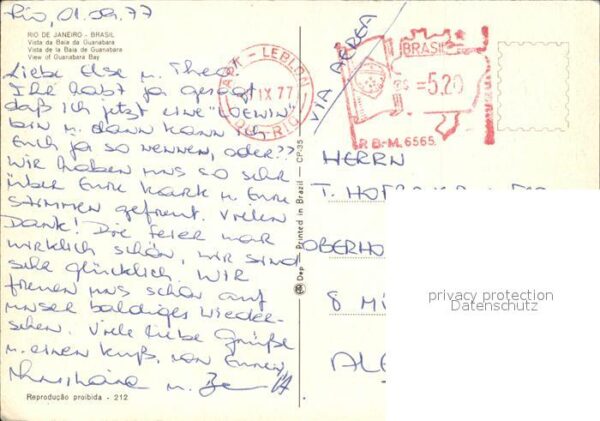 Rio, 01.09.77
RIO DE JANEIRO - BRASIL
Vista da Baia da Guanabara
Vista de la Baia de Guanabara
View of Guanabara Bay
Liebe Else u. Theo!
Ihr habt ja gesagt
daß ich jetzt eine "LOEWIN"
bin u. dann kann ich
Euch ja so nennen, oder??
Wir haben uns so sehr
über Eure Karte u. Eure
Stimmen gefreut. Vielen
Dank! Die Feier war
wirklich schön, wir sind
sehr glücklich. Wir
freuen uns schon auf
unser baldiges Wieder-
sehen. Viele liebe Grüße
u. einen Kuß, von Euren
u.
Reprodução proibida - 212
Dep - Printed in Brazil - CP-35
LEBLON
IX 77
RIO
VIA AEREA
BRASIL
=5,20
P.B.-M. 6565
HERRN
T.
OBERHO
8 MÜ
ALE
privacy protection
Datenschutz